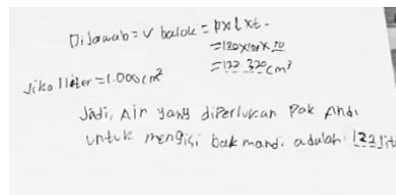 Dijawab = v balok = p x l x t.
= 120 x 102 x 10
= 122.320 cm³
Jika 1 liter = 1.000 cm³
Jadi, Air yang diperlukan Pak Andi
untuk mengisi bak mandi adalah 122 lit